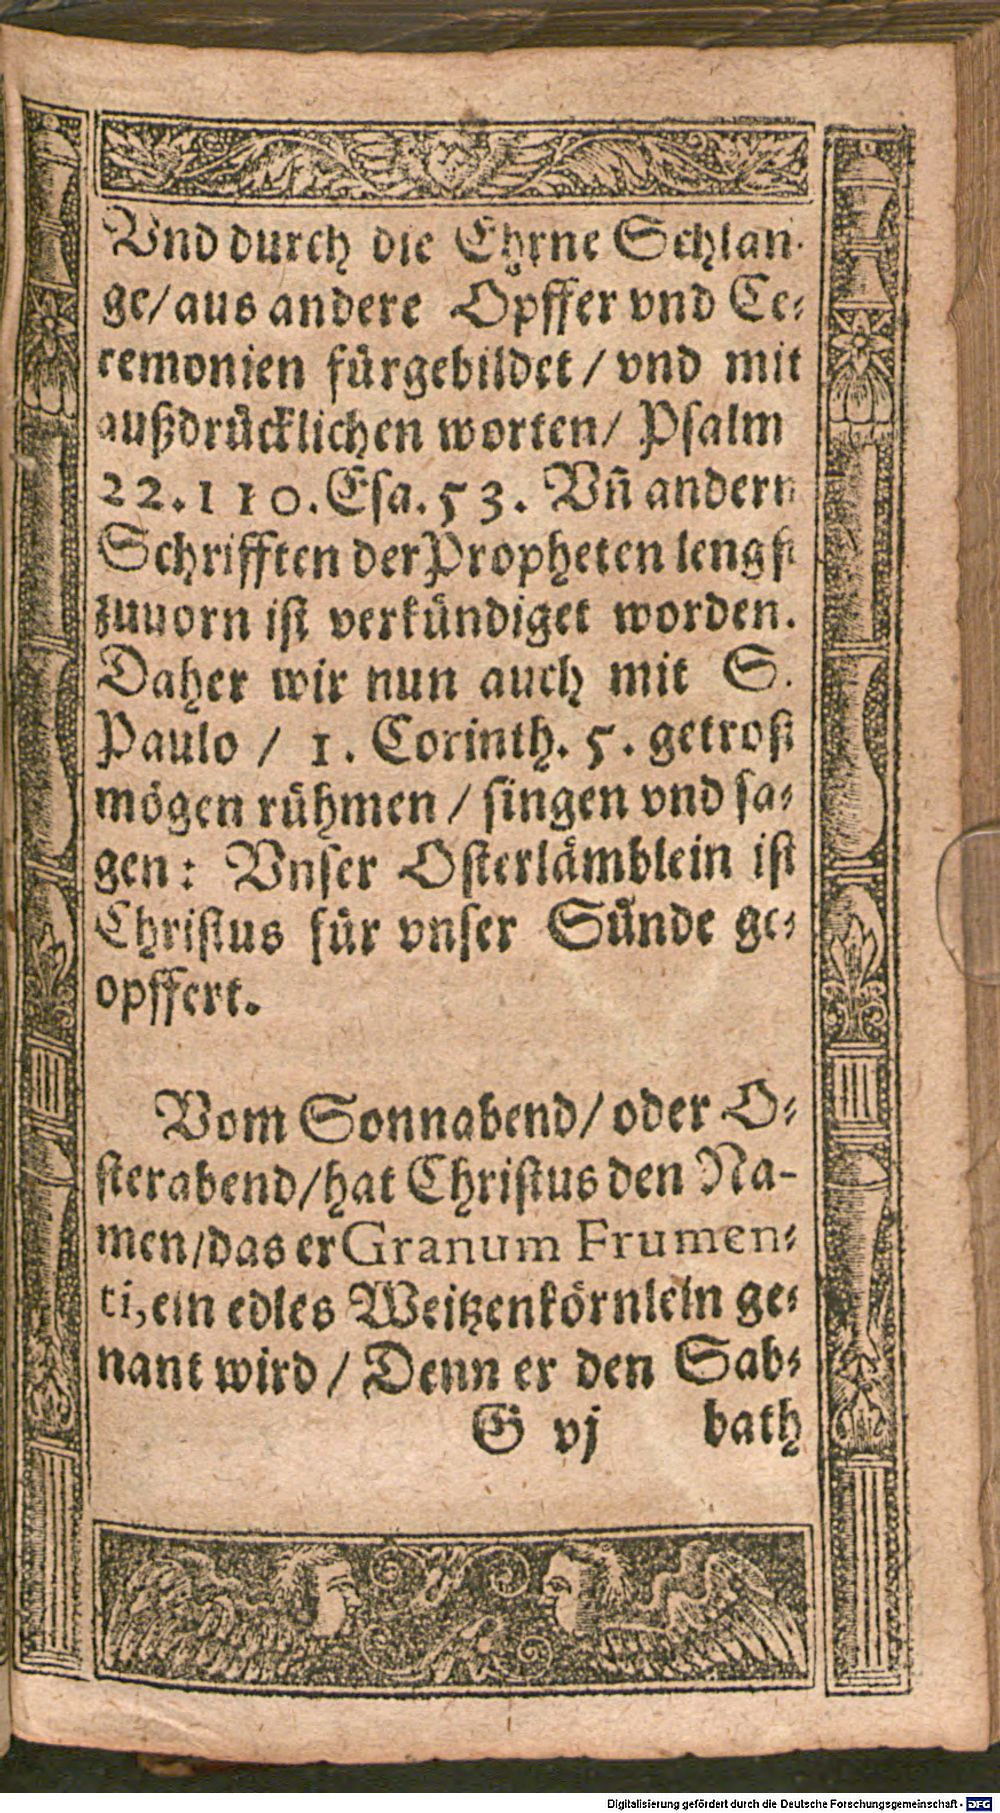 Vnd durch die Ehrne Schlan-
ge/aus andere Opffer vnd Ce-
remonien fürgebildet / vnd mit
außdrücklichen worten/ Psalm
22.110.Esa.53. Vñ andern
Schrifften der Propheten lengst
zuuorn ist verkündiget worden.
Daher wir nun auch mit S.
Paulo / 1. Corinth. 5. getrost
mögen rühmen / singen vnd sa-
gen: Vnser Osterlämblein ist
Christus für vnser Sünde ge-
opffert.
Vom Sonnabend/ oder O-
sterabend/hat Christus den Na-
men/das er Granum Frumen-
ti,ein edles Weitzenkörnlein ge-
nant wird / Denn er den Sab-
G vj bath
Digitalisierung gefördert durch die Deutsche Forschungsgemeinschaft - DFG